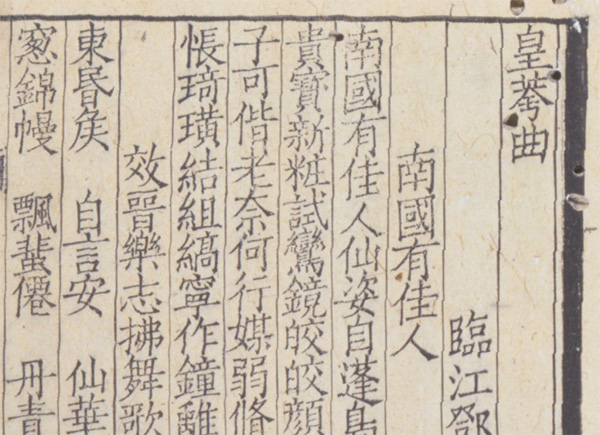 皇荂曲
臨江鄧
南國有佳人
南國有佳人仙姿自蓬島
貴寶新粧試鸞鏡皎皎顔
子可偕老奈何行媒弱脩
悵琦璜結組縞寧作鐘離
效晉樂志拂舞歌
東昬矦 自言安 仙華
窻錦幔 飄蜚僊 丹青